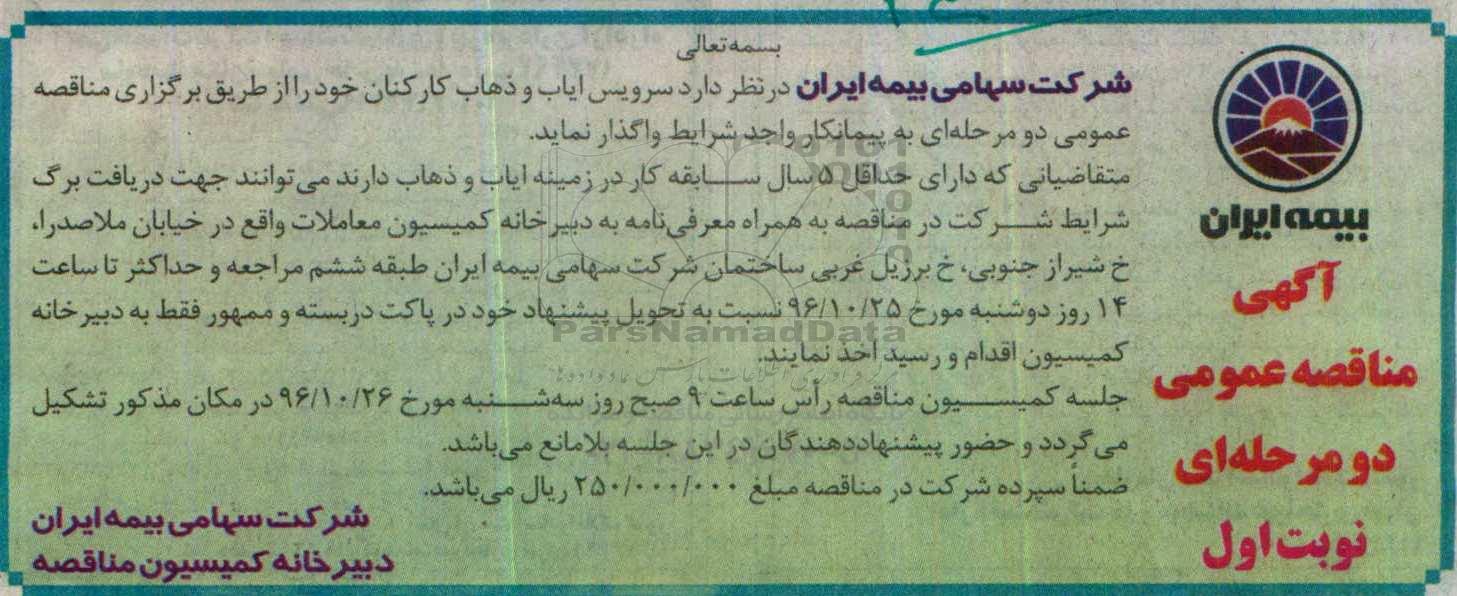 بسمه‌تعالی
شرکت سهامی بیمه ایران در نظر دارد سرویس ایاب و ذهاب کارکنان خود را از طریق برگزاری مناقصه
عمومی دو مرحله‌ای به پیمانکار واجد شرایط واگذار نماید.
متقاضیانی که دارای حداقل ۵ سال سابقه کار در زمینه ایاب و ذهاب دارند می‌توانند جهت دریافت برگ
شرایط شرکت در مناقصه به همراه معرفی‌نامه به دبیرخانه کمیسیون معاملات واقع در خیابان ملاصدرا،
خ شیراز جنوبی، خ برزیل غربی ساختمان شرکت سهامی بیمه ایران طبقه ششم مراجعه و حداکثر تا ساعت
۱۴ روز دوشنبه مورخ ۹۶/۱۰/۲۵ نسبت به تحویل پیشنهاد خود در پاکت دربسته و ممهور فقط به دبیرخانه
کمیسیون اقدام و رسید اخذ نمایند.
جلسه کمیسیون مناقصه رأس ساعت ۹ صبح روز سه‌شنبه مورخ ۹۶/۱۰/۲۶ در مکان مذکور تشکیل
می‌گردد و حضور پیشنهاددهندگان در این جلسه بلامانع می‌باشد.
ضمناً سپرده شرکت در مناقصه مبلغ ۲۵۰/۰۰۰/۰۰۰ ریال می‌باشد.
شرکت سهامی بیمه ایران
دبیرخانه کمیسیون مناقصه
بیمه ایران
آگهی
مناقصه عمومی
دو مرحله‌ای
نوبت اول
ParsNamadData